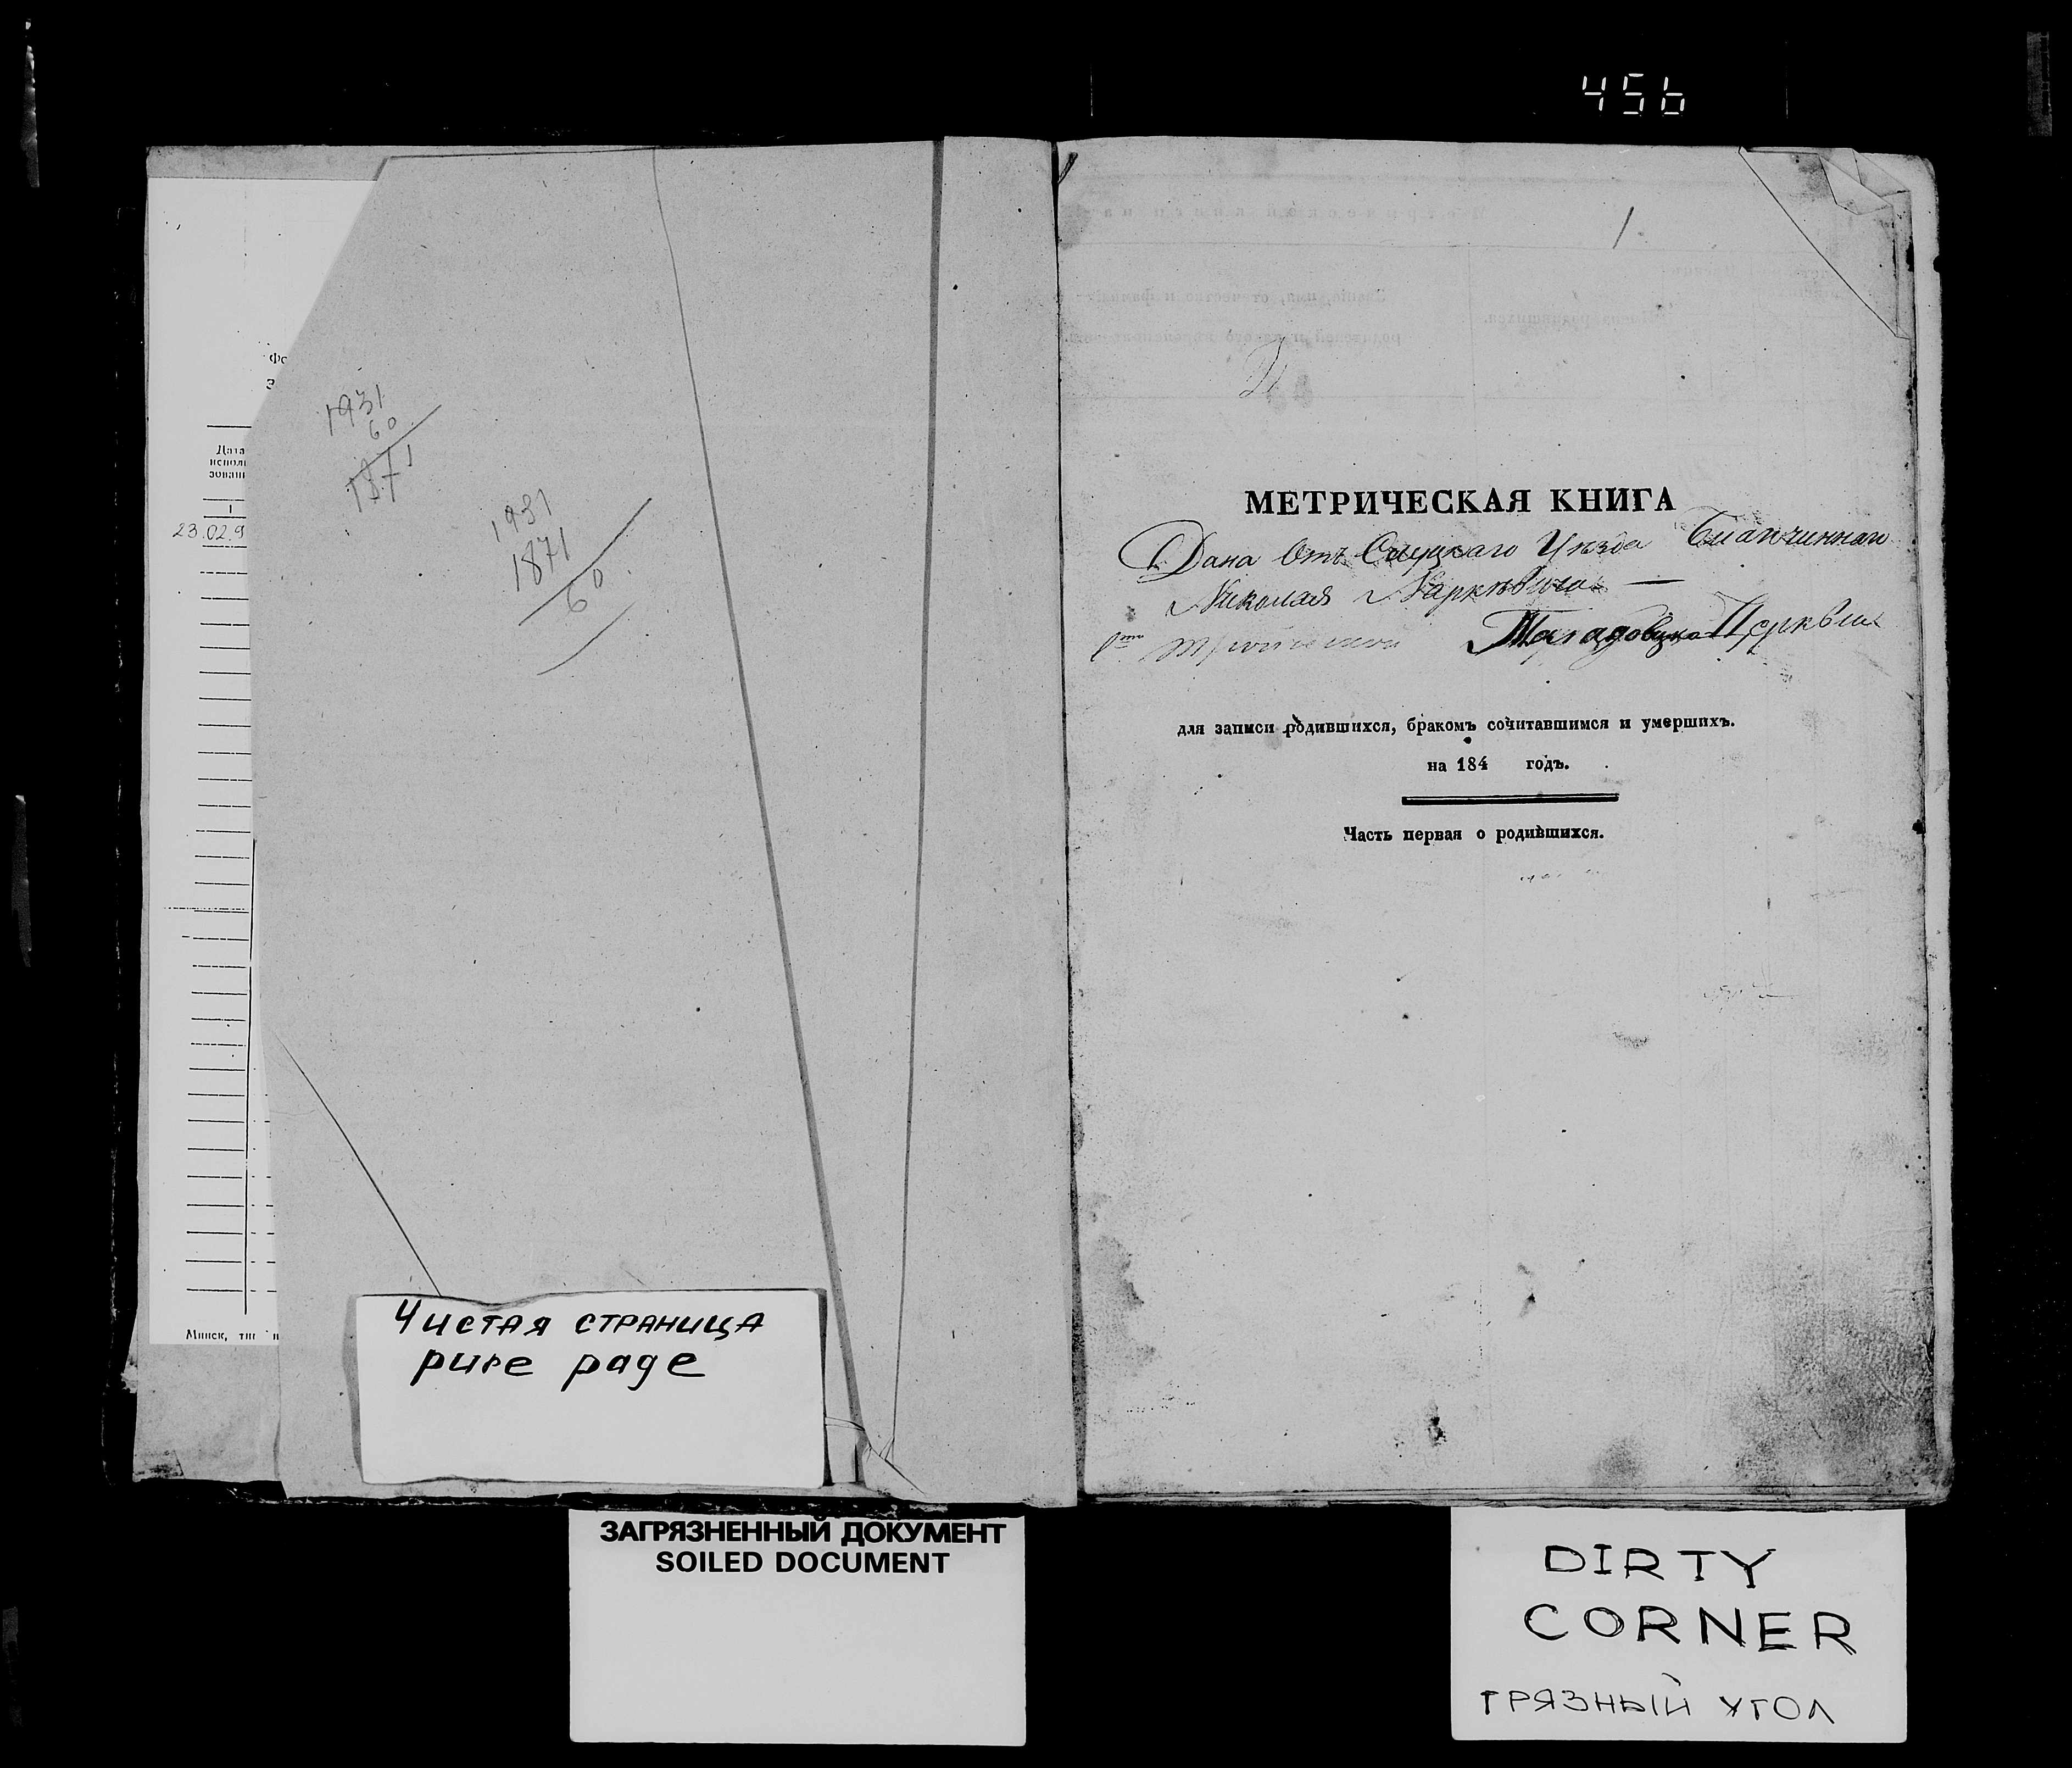 456
1
Фо
З
Дата
исполь
зовани
1
23.02.9
1931
60
1871
1931
1871
60
Минск, тип
МЕТРИЧЕСКАЯ КНИГА
Дана Отъ Слуцкаго Уѣзда Благочиннаго
Николая
Церквы
для записи родившихся, бракомъ сочитавшимся и умершихъ.
на 184 годъ.
Часть первая о родившихся.
Чистая страница
pure page
ЗАГРЯЗНЕННЫЙ ДОКУМЕНТ
SOILED DOCUMENT
DIRTY
CORNER
ГРЯЗНЫЙ УГОЛ